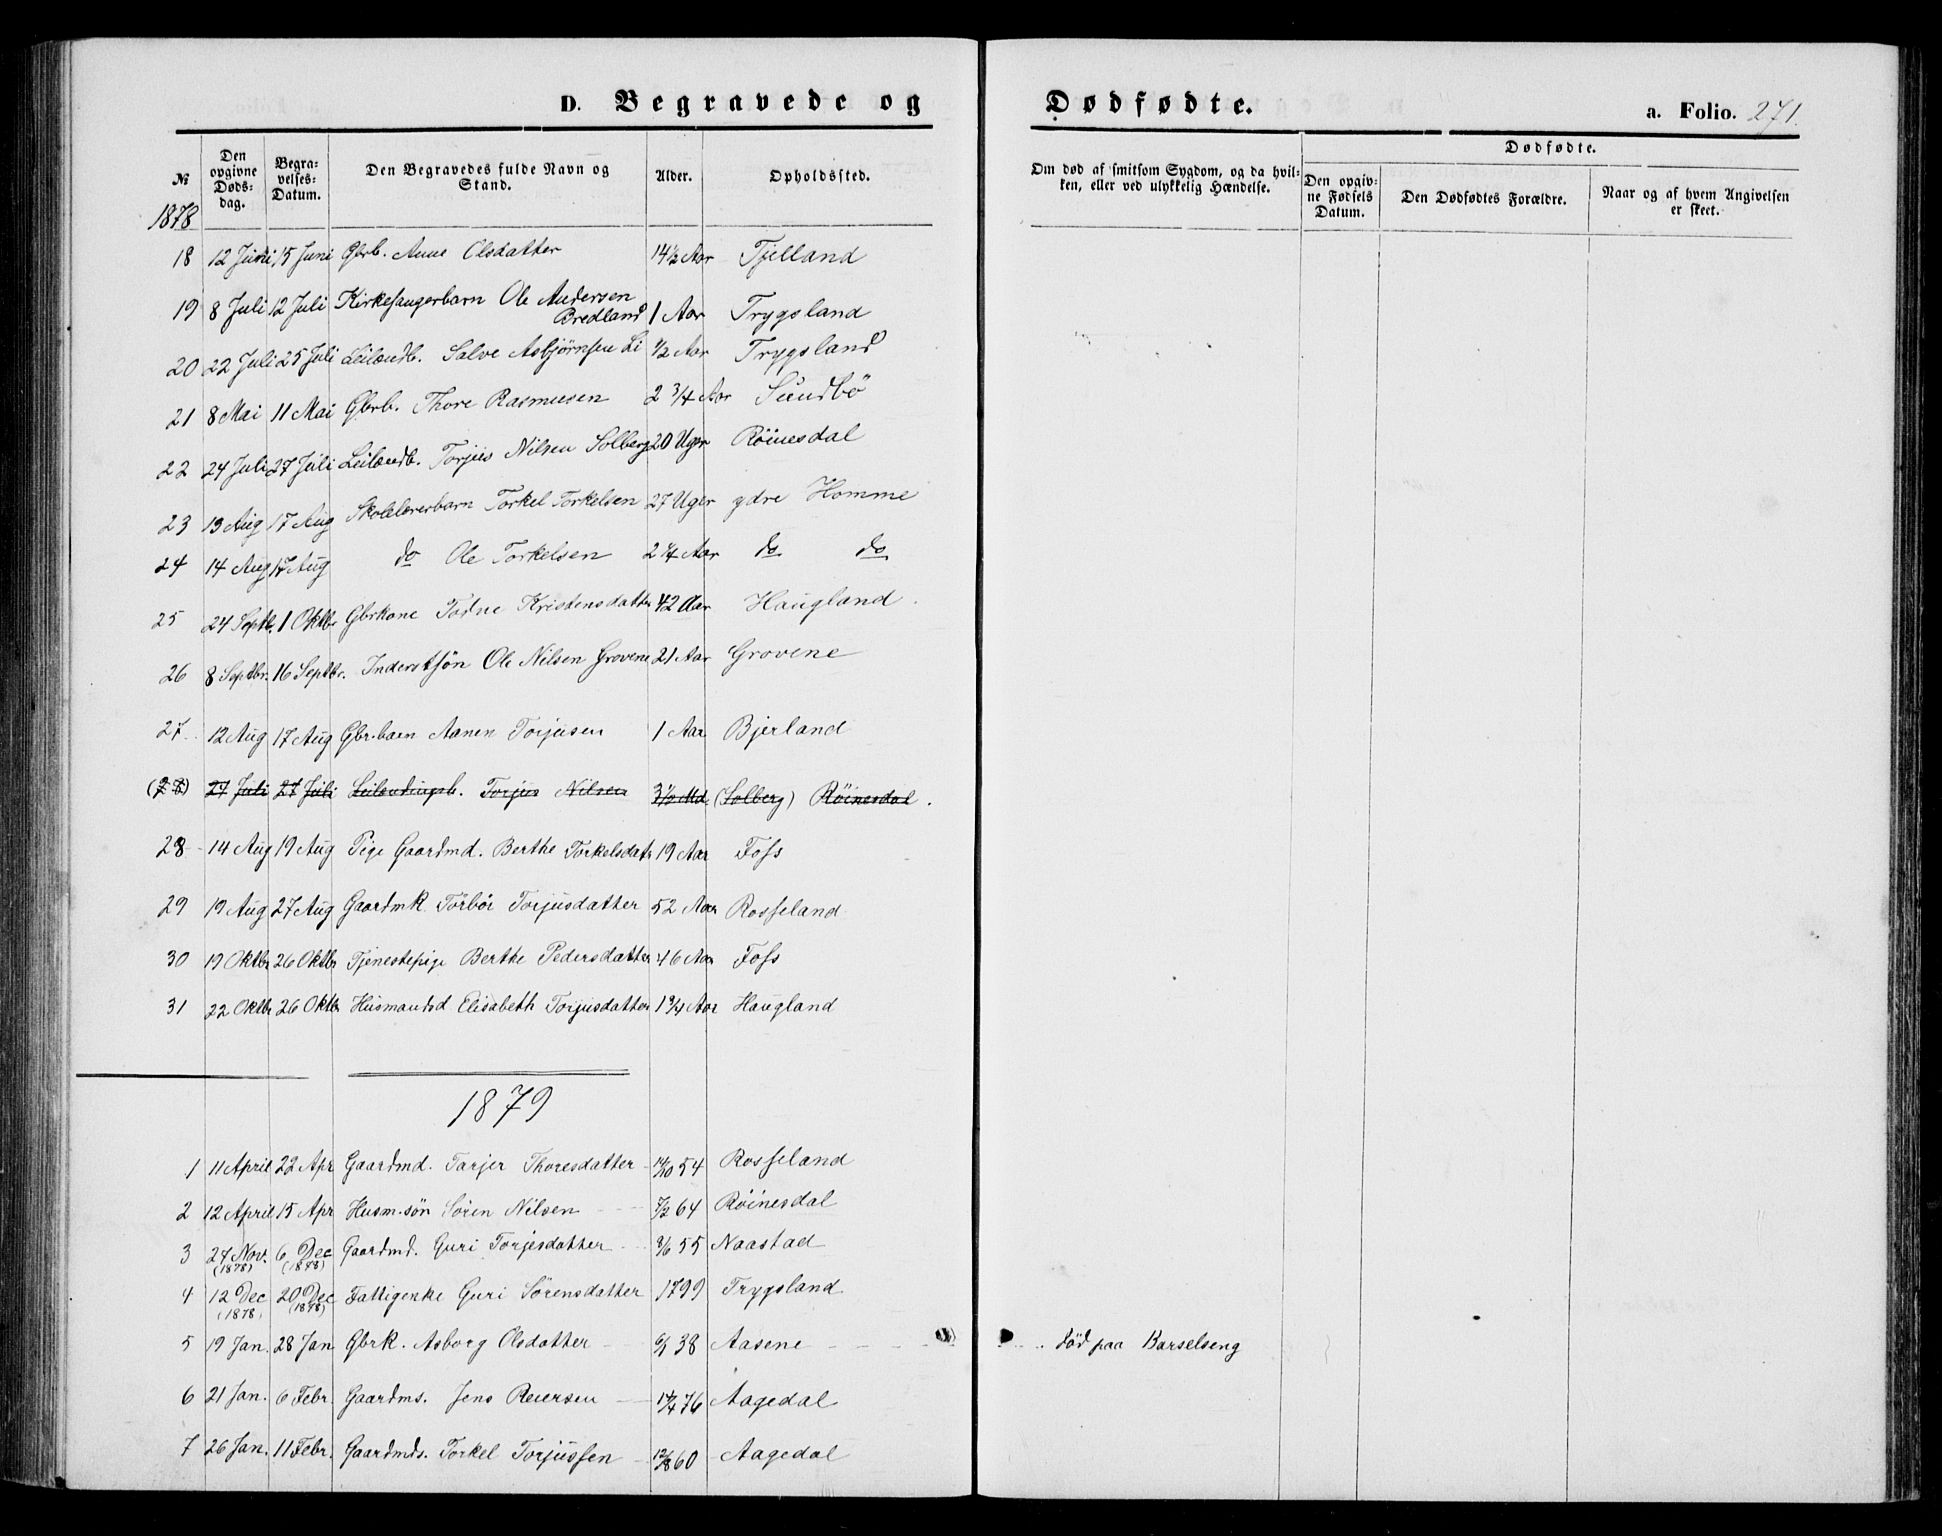 D. Begravede og Dødfødte.
a. Folio. 271.
№ Den opgivne Døds-dag. Begra-velses-Datum. Den Begravedes fulde Navn og Stand. Alder. Opholdssted. Om død af smitsom Sygdom, og da hvil-ken, eller ved ulykkelig Hændelse. Dødfødte. Den opgiv-ne Fødsels Datum. Den Dødfødtes Forældre. Naar og af hvem Angivelsen er skeet.
1878
18 12 Juni 15 Juni Gbrb. Anne Olsdatter 14½ Aar Tjelland
19 8 Juli 12 Juli Kirkesangerbarn Ole Andersen Bredland 1 Aar Trygsland
20 22 Juli 25 Juli Leilændb. Salve Asbjørnsen Li ½ Aar Trygsland
21 8 Mai 11 Mai Gbrb. Thore Rasmusen 2 3/4 Aar Sundbö
22 24 Juli 27 Juli Leilændb. Torjus Nilsen Solberg 20 Uger Röinesdal
23 13 Aug 17 Aug Skolelærerbarn Torkel Torkelsen 27 Uger ydre Homme
24 14 Aug 17 Aug do Ole Torkelsen 2 1/4 Aar do do
25 24 Septb. 1 Oktbr Gbrkone Todne Kristensdatter 42 Aar Haugland.
26 8 Septbr. 16 Septbr. Inderstsön Ole Nilsen Grovene 21 Aar Grovene
27. 12 Aug 17 Aug Gbr.barn Aanen Torjusen 1 Aar Bjerland
(28) 27 Juli 27 Juli Leilendingsb. Torjus Nilsen 3½ Md. (Solberg) Röinesdal.
28 14 Aug 19 Aug Pige Gaardmd. Berthe Torkelsdatr 19 Aar Foss
29 19 Aug 27 Aug Gaardmk. Torbör Torjusdatter 52 Aar Rosseland
30 19 Oktbr 26 Oktbr Tjenestepige Berthe Pedersdatter 46 Aar Foss
31 22 Oktbr 26 Oktbr Husmandsd Elisabeth Torjusdatter 1 3/4 Aar Haugland
1879
1 11 April 22 Apr Gaardmd. Tarjer Thoresdatter 14/10 54 Rosseland
2 12 April 15 Apr Husm.sön Sören Nilsen 7/2 64 Röinesdal
3 27 Nov. (1878) 6 Dec (1878) Gaardmd. Guri Torjesdatter 8/6 55 Naastad
4 12 Dec (1878) 20 Dec (1878) Fattigenke Guri Sörensdatter 1799 Trygsland
5 19 Jan. 28 Jan Gbrk. Asborg Olsdatter 6/1 38 Aasene død paa Barselseng
6 21 Jan. 6 Febr. Gaardms. Jens Reiersen 17/4 76 Aagedal
7 26 Jan. 11 Febr. Gaardmds. Torkel Torjussen 12/8 60 Aagedal